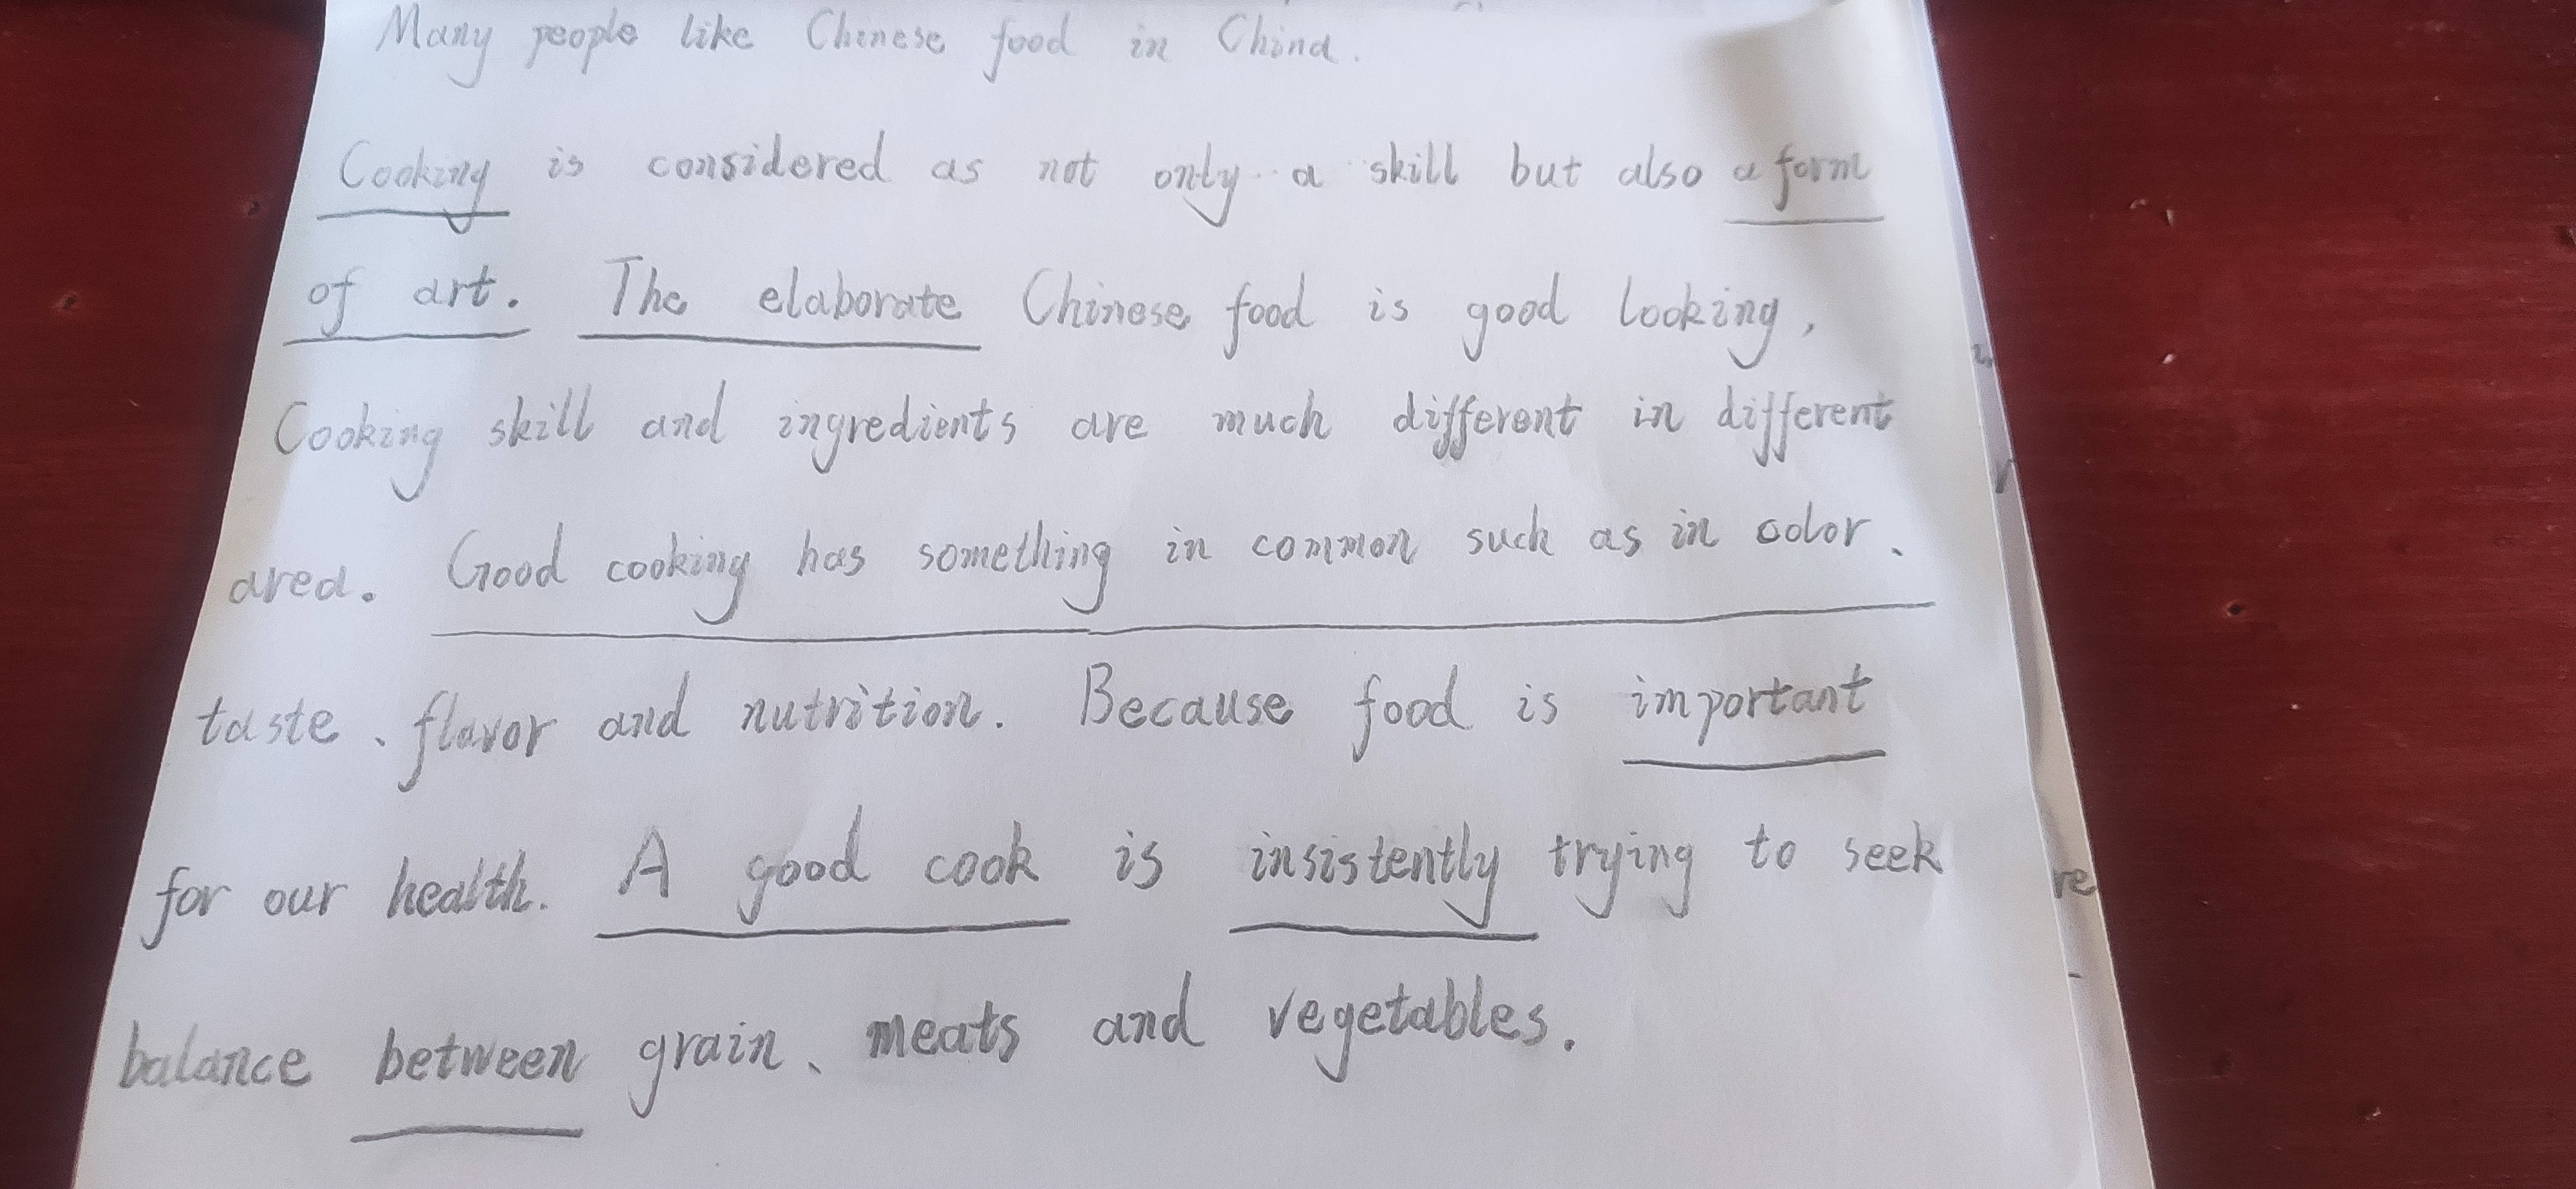 Many people like Chinese food in China.
Cooking is considered as not only a skill but also a form
of art. The elaborate Chinese food is good looking,
Cooking skill and ingredients are much different in different
area. Good cooking has something in common such as in color、
taste、flavor and nutrition. Because food is important
for our health. A good cook is insistently trying to seek
balance between grain、meats and vegetables.